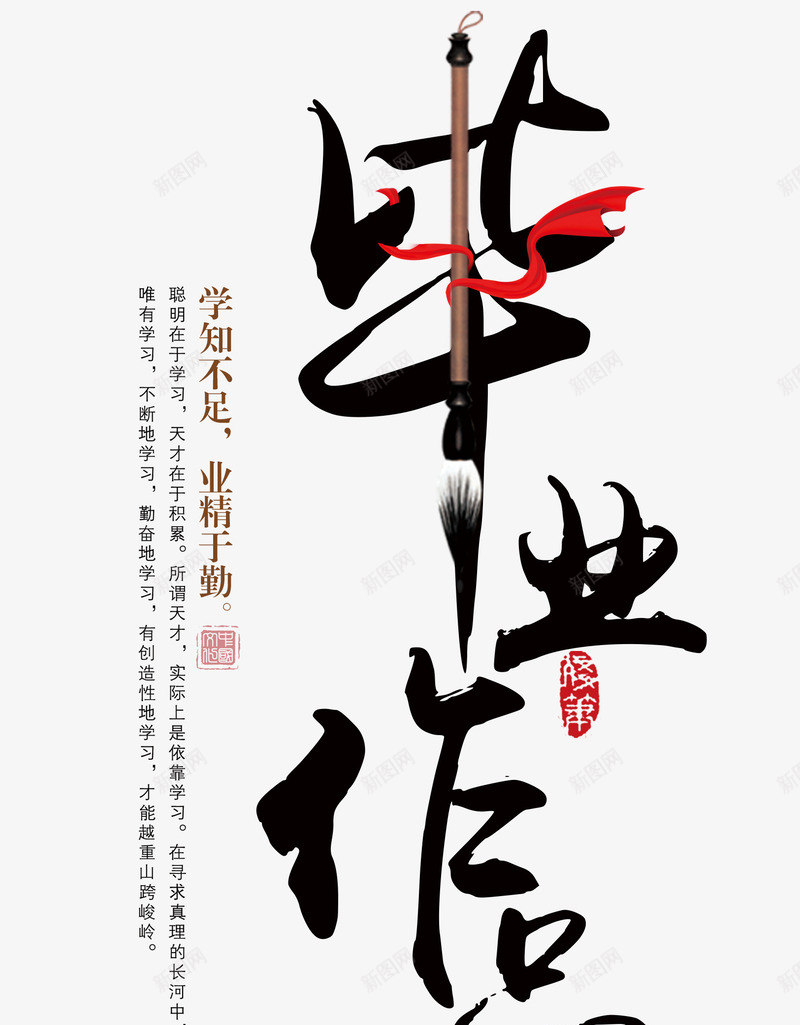 毕业作品
学知不足，业精于勤。
聪明在于学习，天才在于积累。所谓天才，实际上是依靠学习。在寻求真理的长河中，
唯有学习，不断地学习，勤奋地学习，有创造性地学习，才能越重山跨峻岭。
中国
文化
新图网